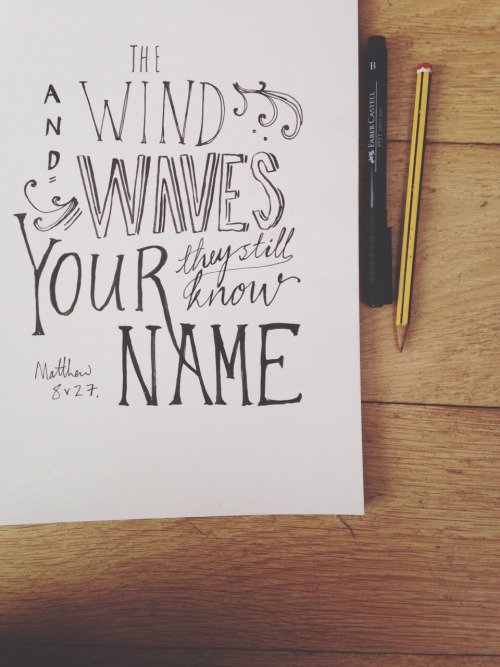 THE
AND WIND
WAVES
they still
know
YOUR
NAME
Matthew
8 v 27.
B
FABER-CASTELL